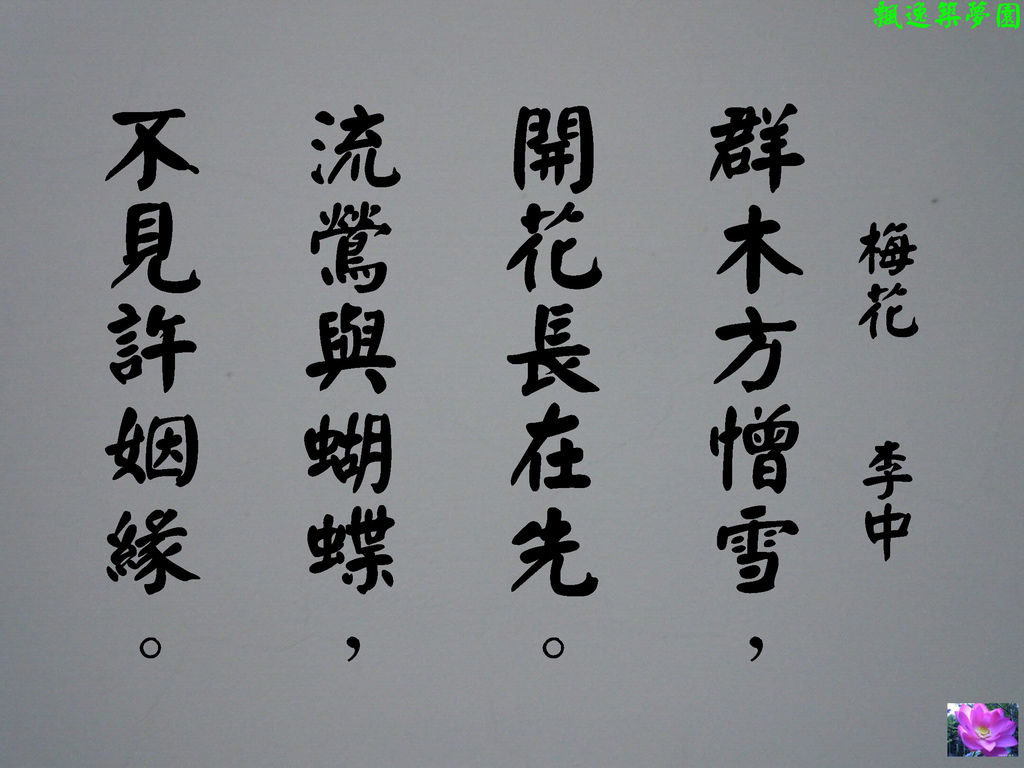 飄逸築夢園
梅花 李中
群木方憎雪，
開花長在先。
流鶯與蝴蝶，
不見許姻緣。